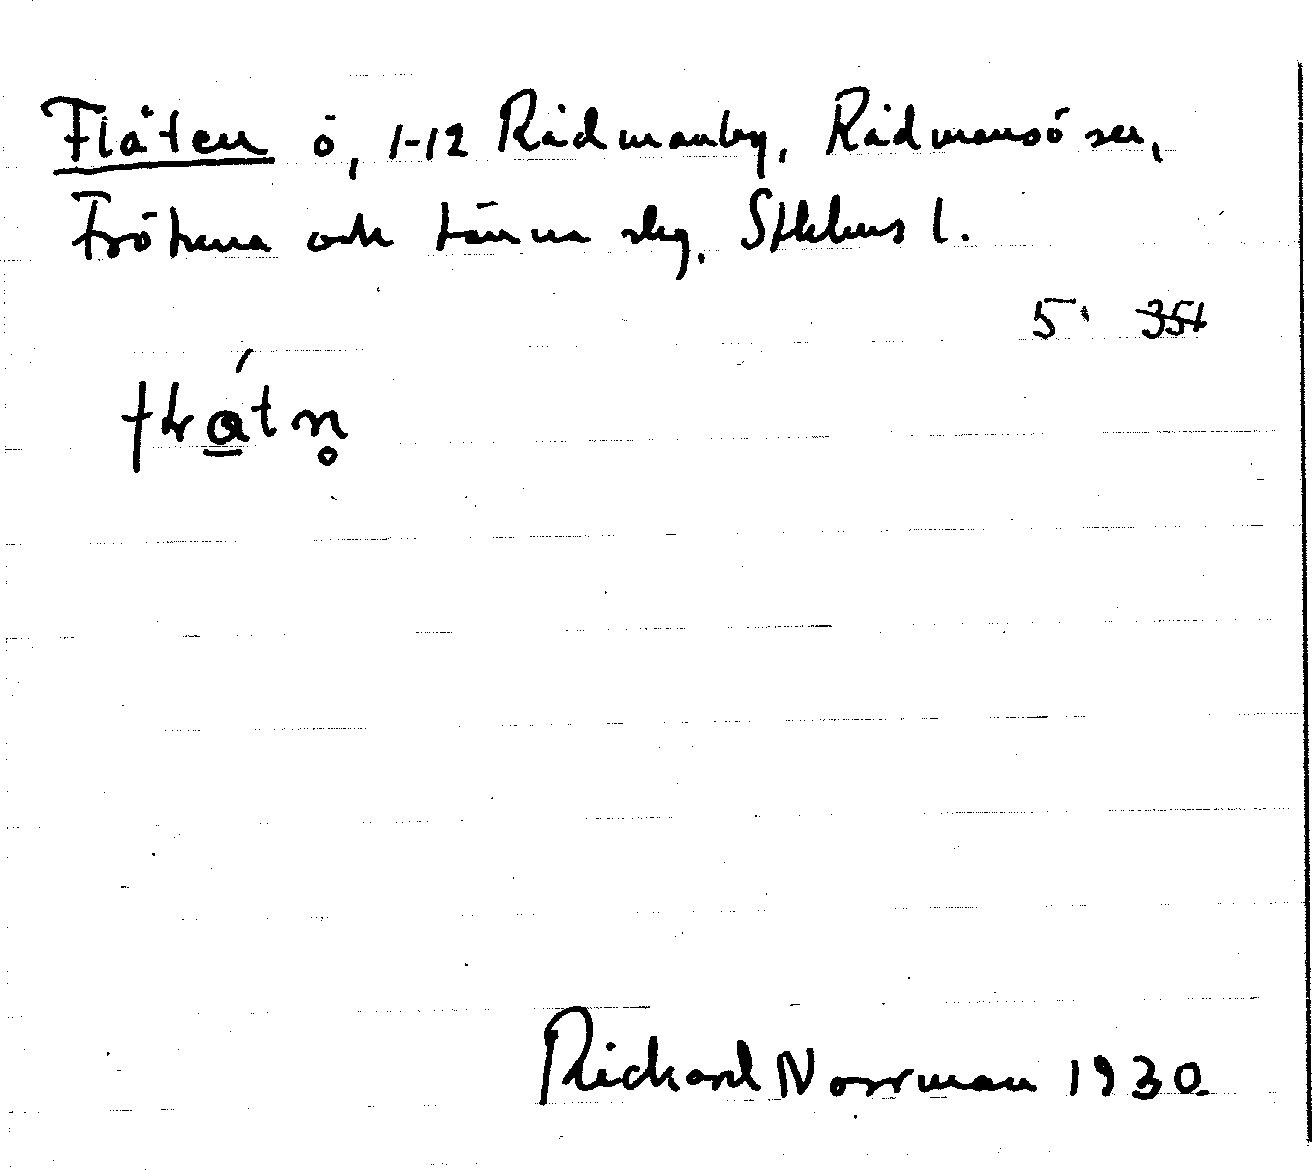 Flåten ö, 1-12 Rådmanby, Rådmansö sn,
Frötuna och Länna slg, Sthlms l.
5. 351
Rickard Norrman 1930.